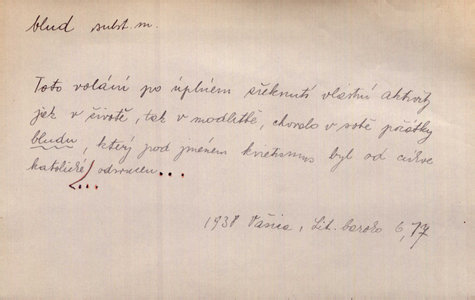 blud subst. m.
Toto volání po úplném zřeknutí vlastní aktivity
jak v životě, tak v modlitbě, chovalo v sobě počátky
bludu, který pod jménem kvietismus byl od církve
katolické odsouzen...
1938 Vašica, Lit. baroko 6, 17